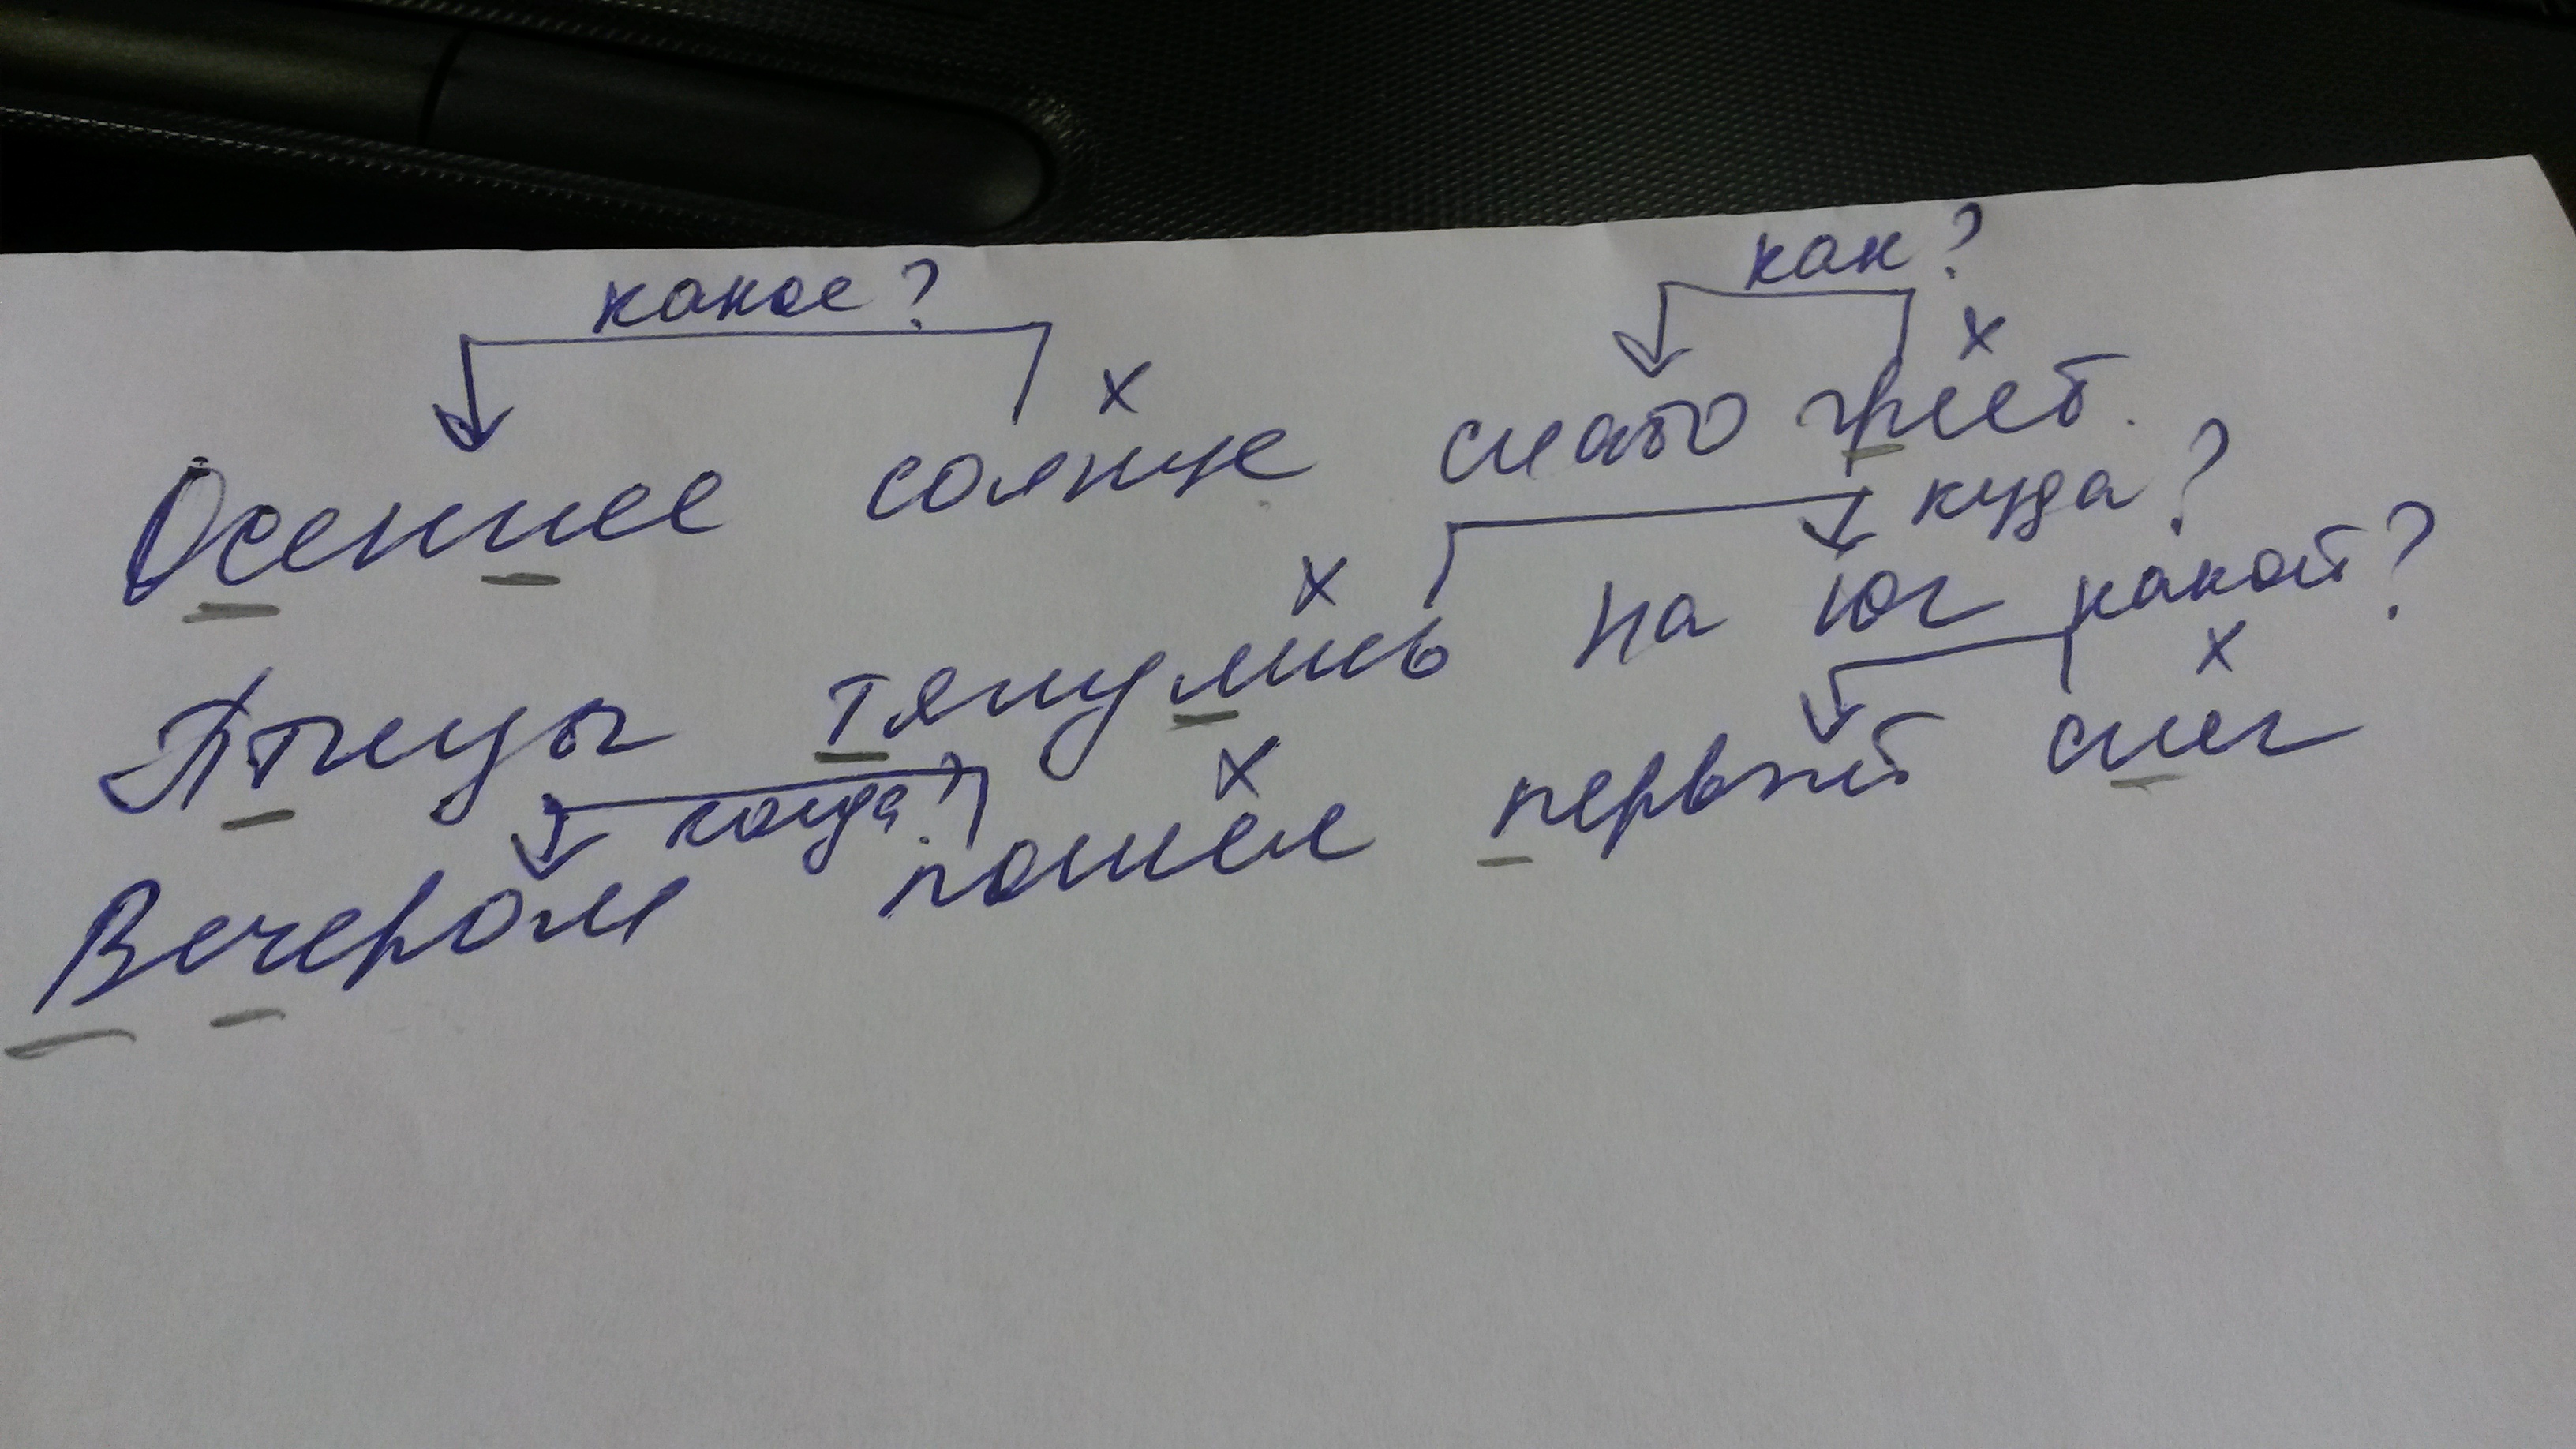 какое? как?
Осеннее солнце слабо греет.
куда?
Птицы тянулись на юг
какой?
когда?
Вечером пошёл первый снег